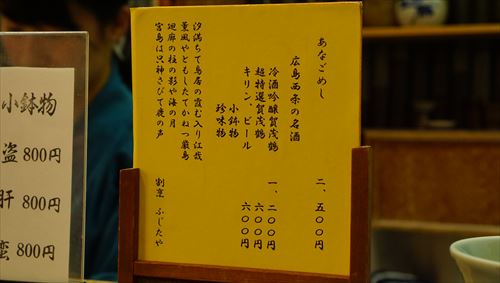 あなごめし 二、五〇〇円
広島西条の名酒
冷酒吟醸賀茂鶴 一、二〇〇円
超特選賀茂鶴 六〇〇円
キリン、ビール 六〇〇円
小鉢物
珍味物
汐満ちて鳥居の霞む入り江哉
薫風やともしたてかねつ厳島
廻廊の柱の影や海の月
宮島は只神さびて鹿の声
割烹 ふじたや
小鉢物
盗 800円
肝 800円
蛮 800円